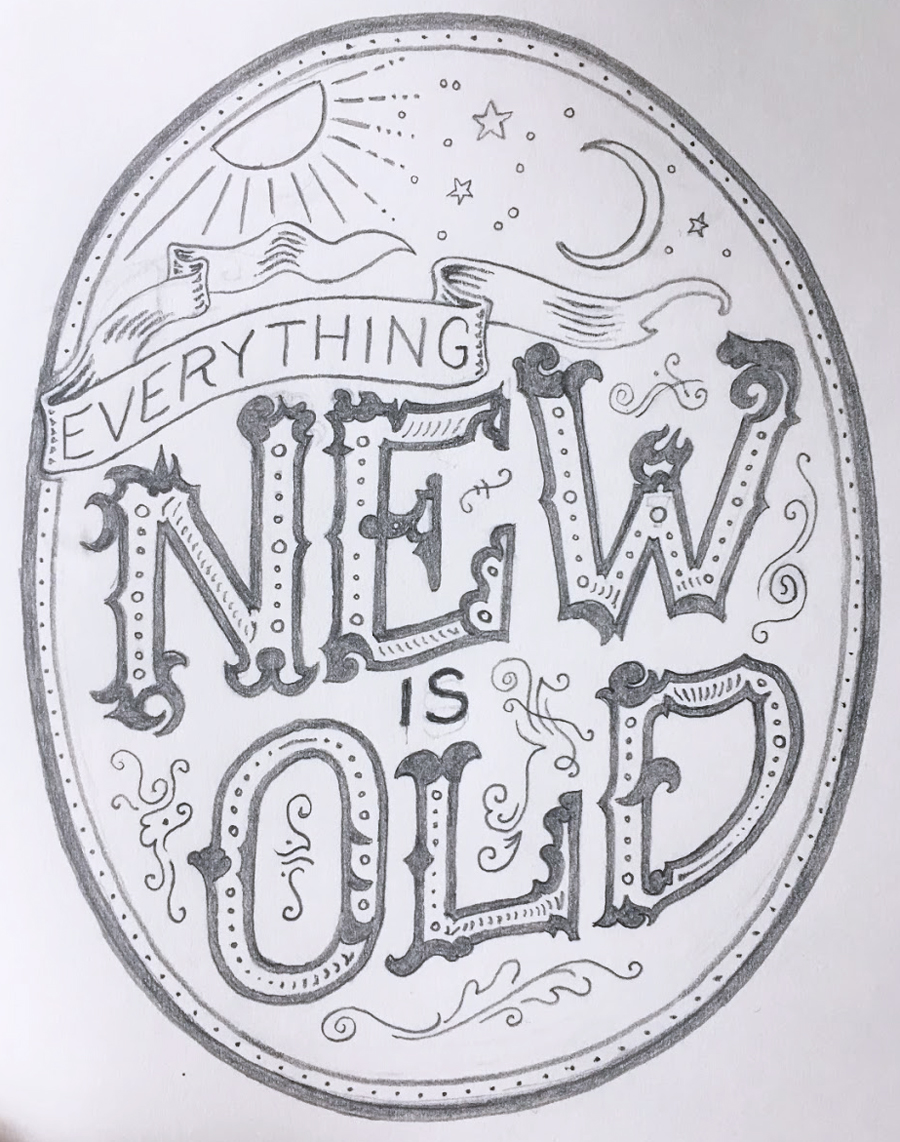 EVERYTHING
NEW
IS
OLD